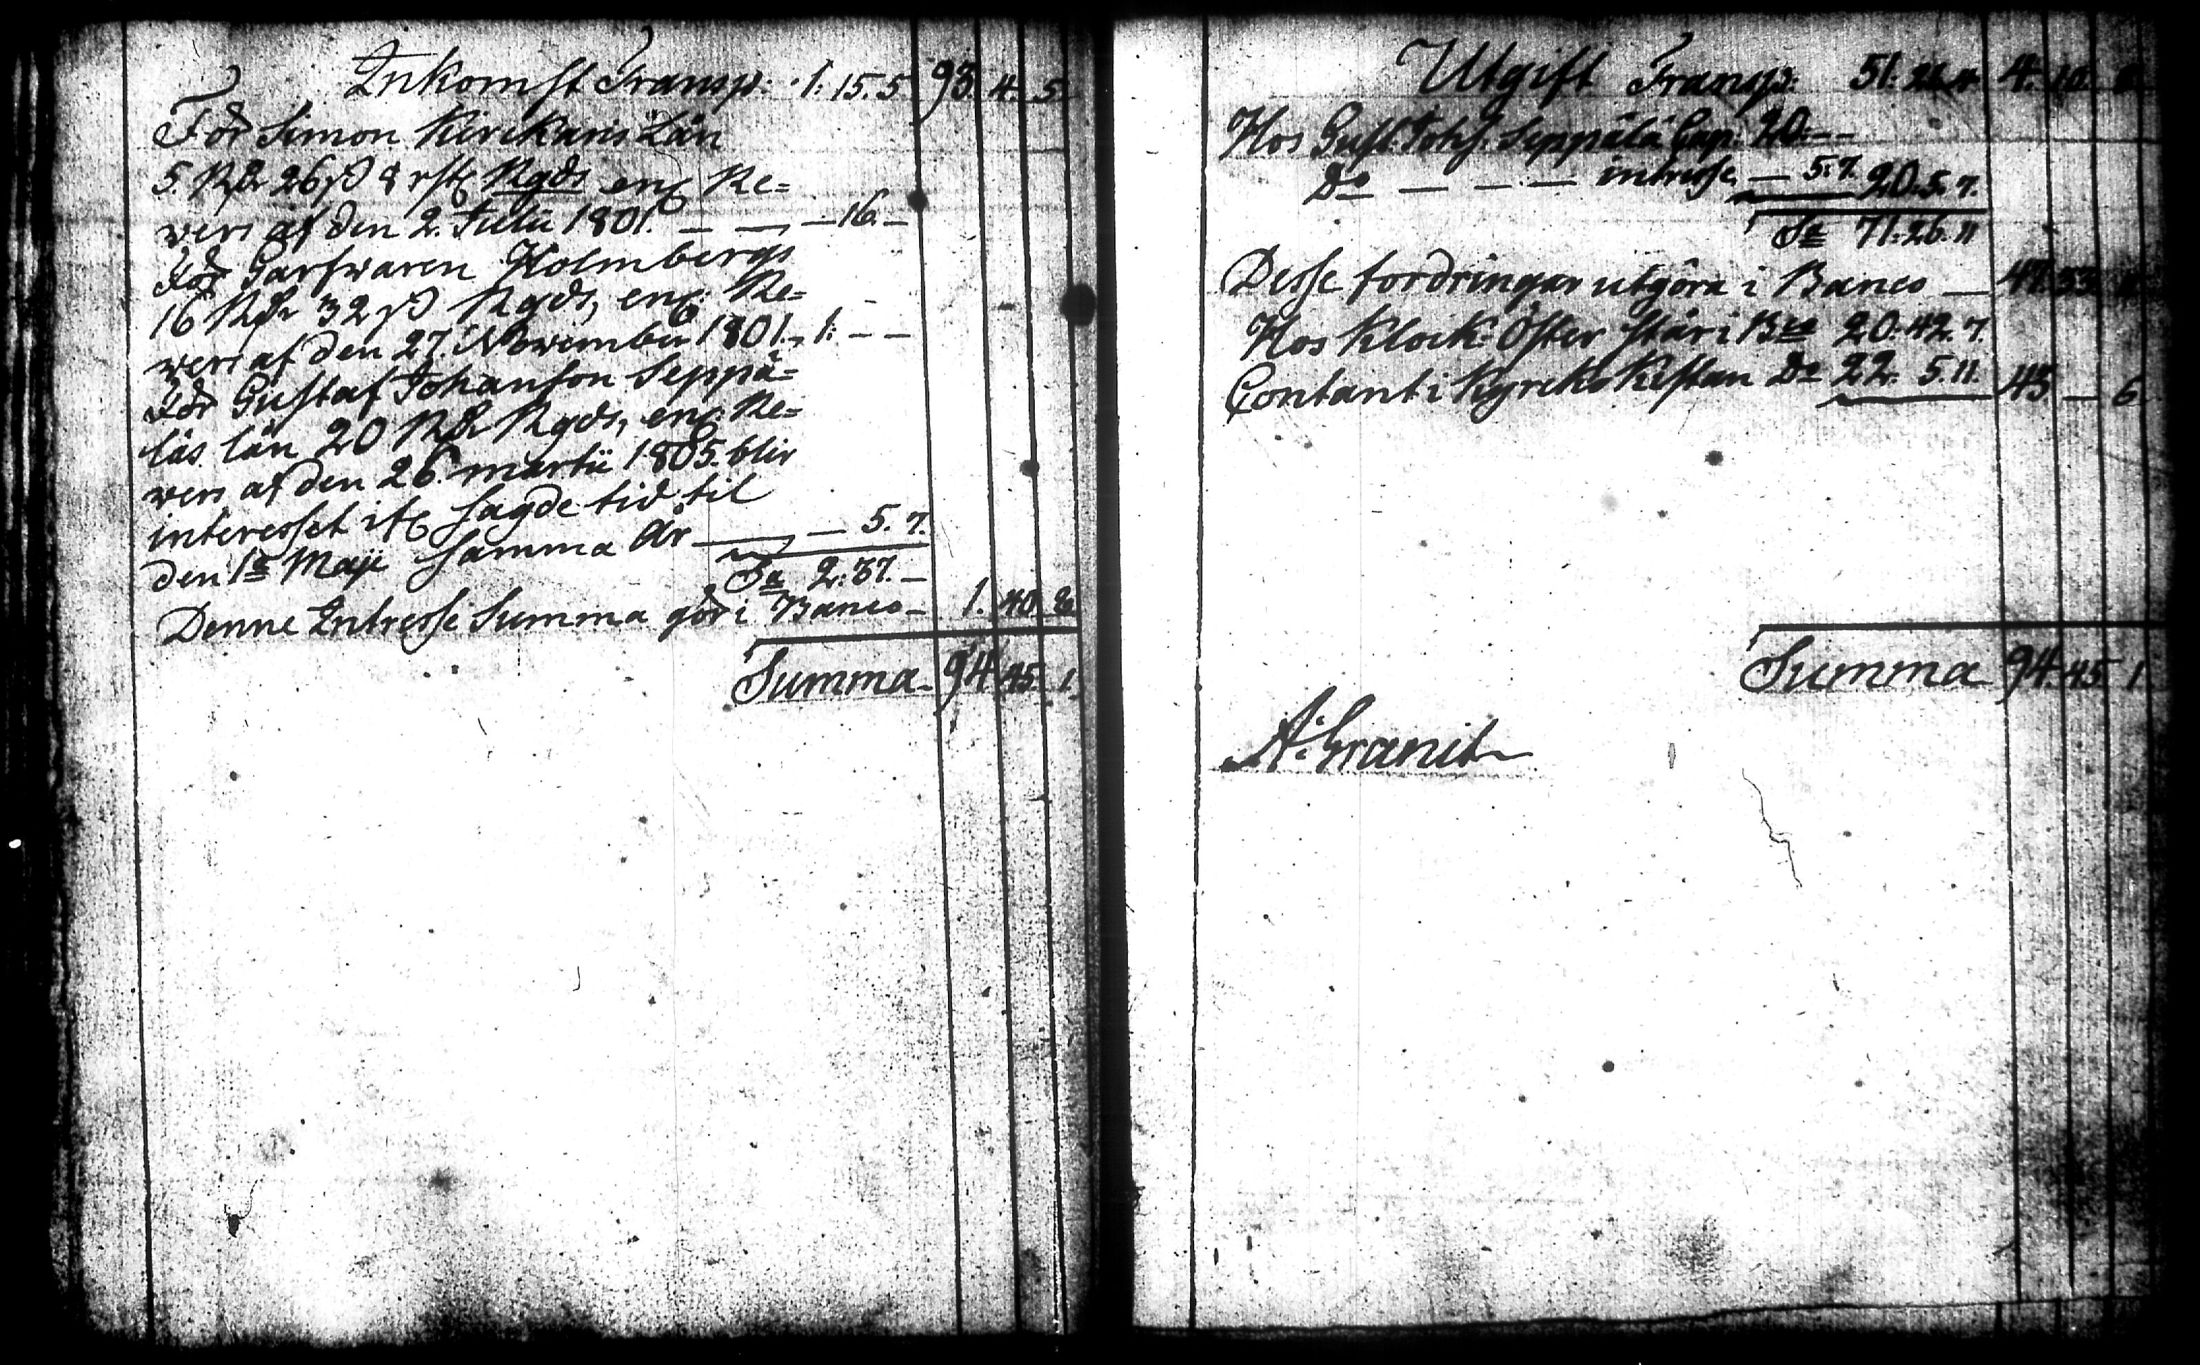 Inkomst Transp: 1: 15. 5 93. 4. 5.
För Simon Kirckaris Lån
5. Rdr 26 ß 8 rst Rgds enl Re=
vers af den 2. Julii 1801. — — — 16. —
För Garfwaren Holmbergs
16 Rdr 32 ß Rgds, enl. Re=
vers af den 27. November 1801. 1: — —
För Gustaf Johanson Seppä=
läs lån 20 Rdr Rgds, enl. Re=
vers af den 26. martii 1805. blir
interesset ifr sagde tid til
den 1a Maji samma år — — 5. 7.
Sa 2: 37. —
Denne Intresse Summa gör i Banco — 1. 40. 8.
Summa — 94. 45. 1.
Utgift Transp: 51: 4. 10.
Hos Gust. Johs. Seppälä Cap. 20: — —
Do — — — — intresse — 5. 7. 20. 5. 7.
Sa 71: 26. 11
Desse fordringar utgöra i Banco — 47. 33.
Hos Klock: Öster står i Bco 20: 42. 7.
Contant i Kyrcko Kistan Do 22. 5. 11. 43 — 6
Summa 94. 45. 1
A: Granit